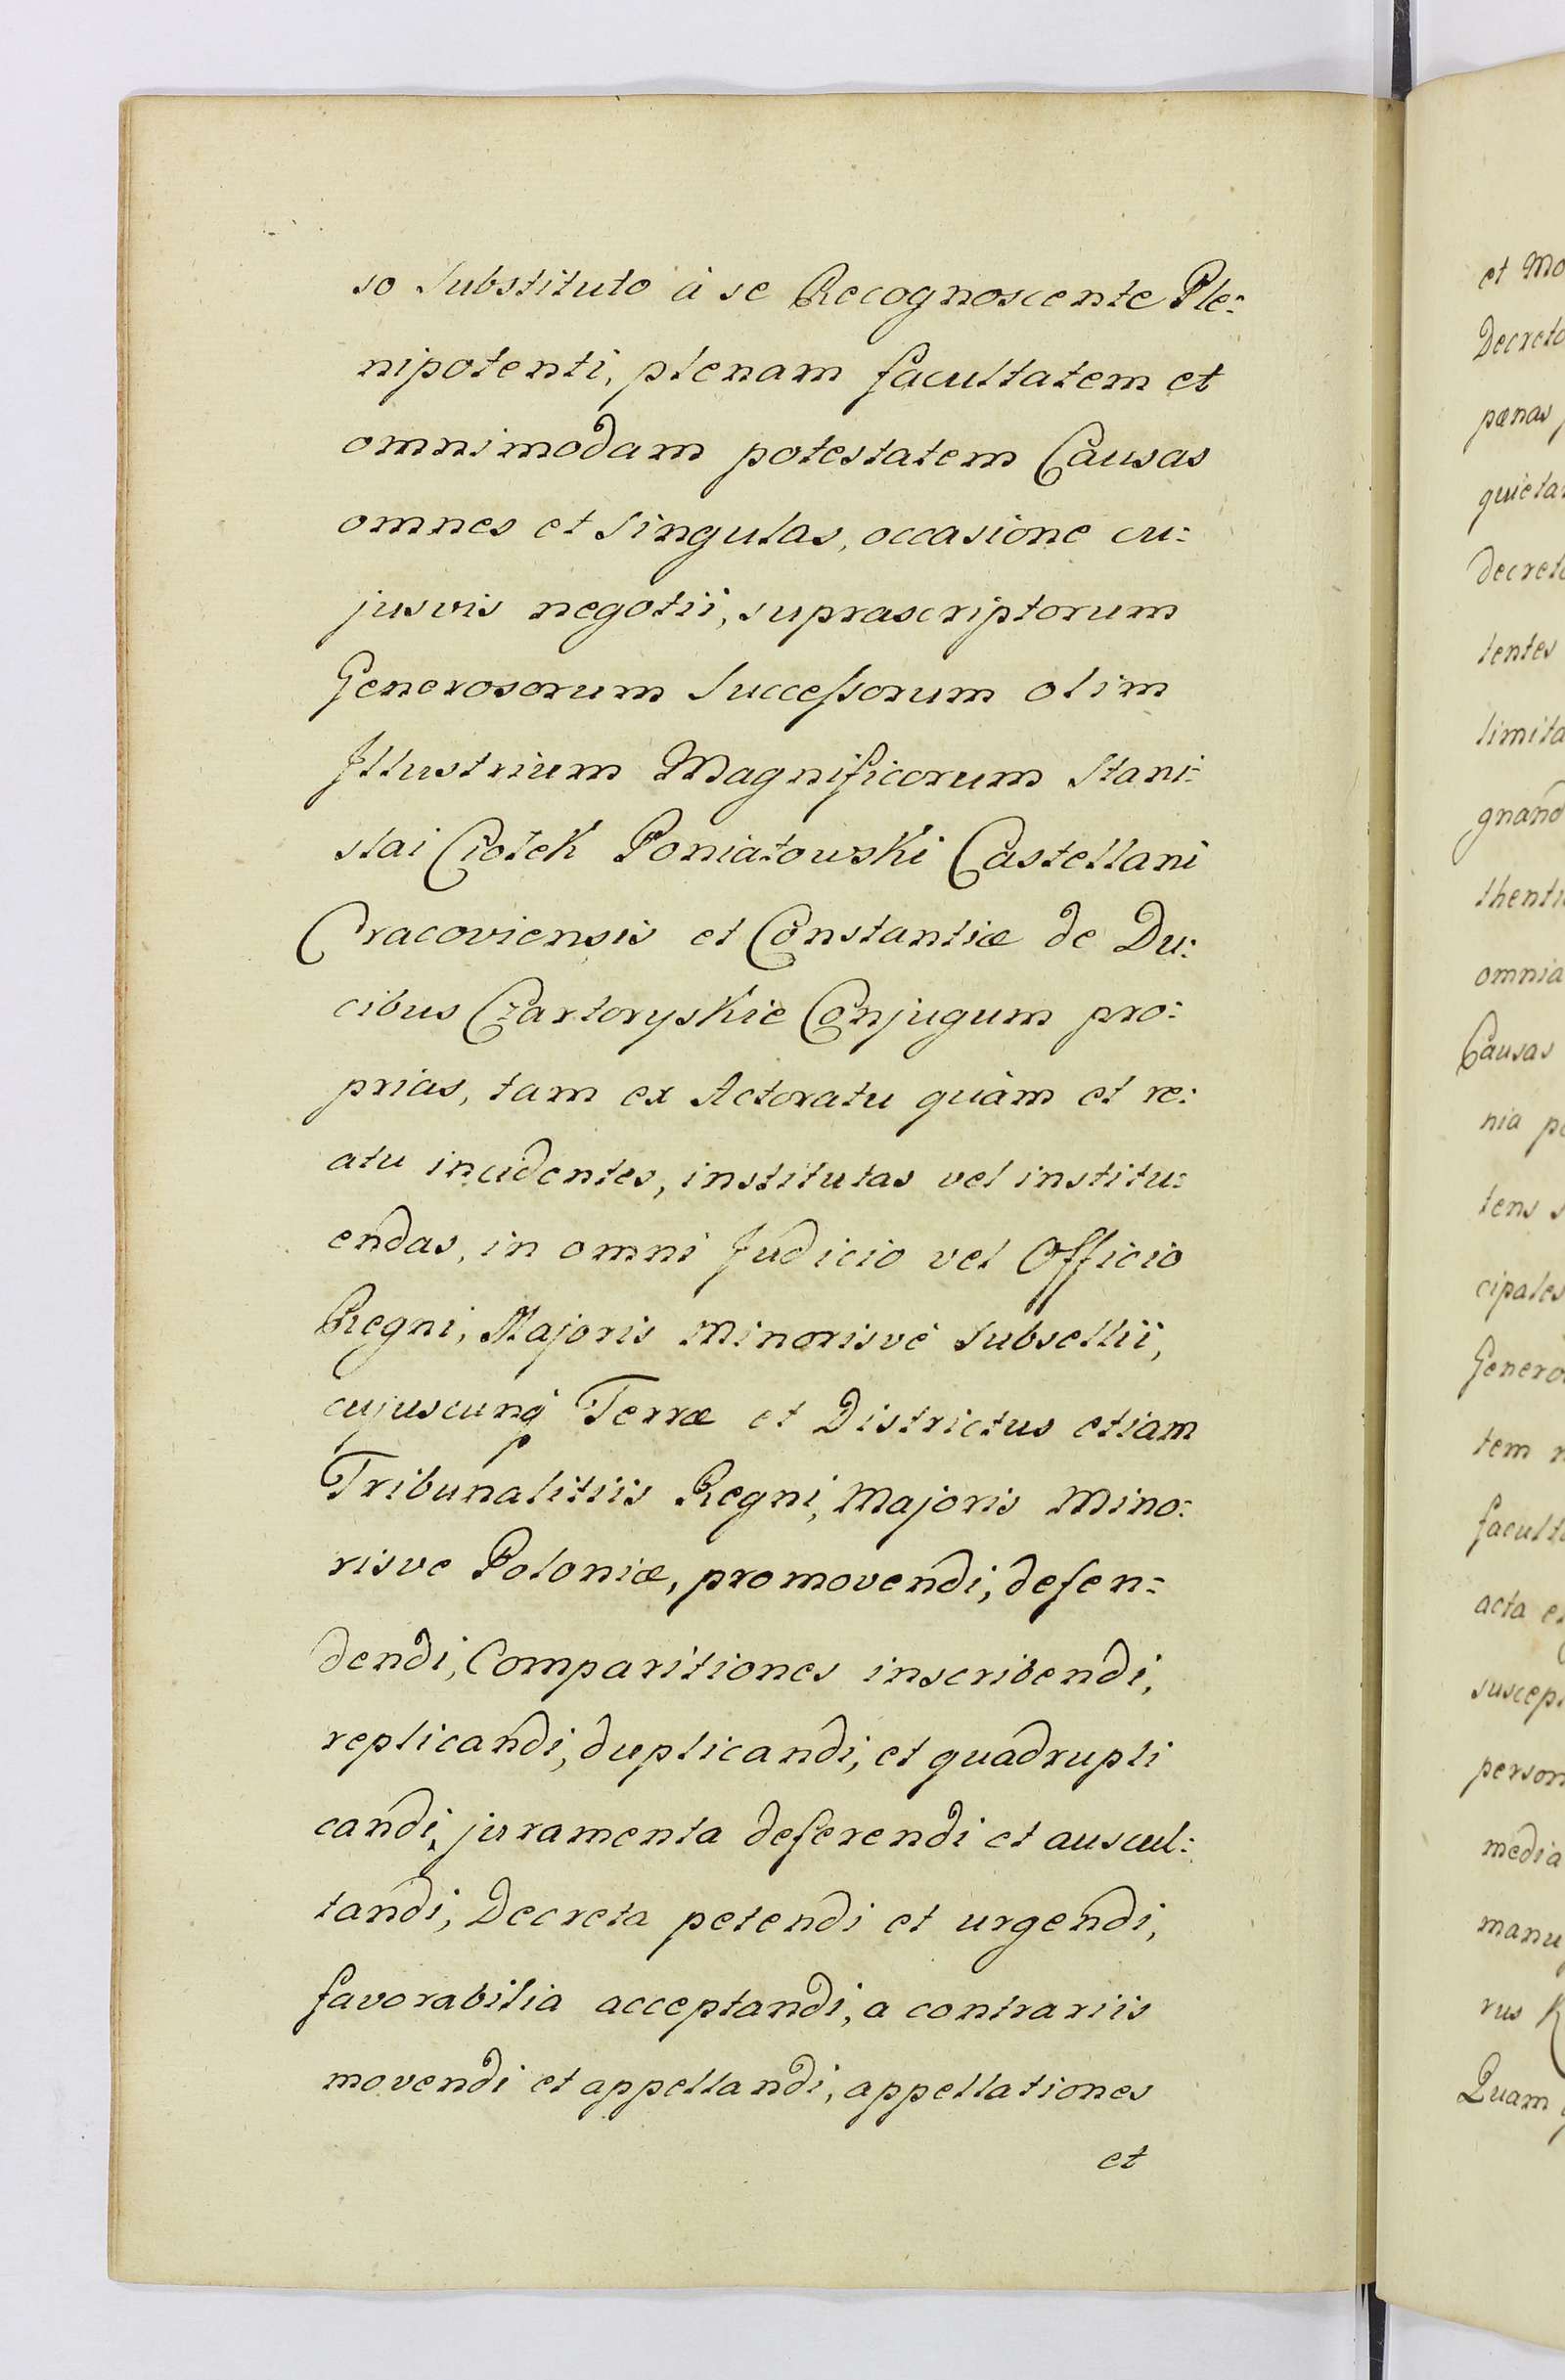 so Substituto à se Recognoscente Ple:
nipotenti, plenam facultatem et
omnimodam potestatem Causas
omnes et Singulas, occasione cu:
jusvis negotii, suprascriptorum
Generosorum Successorum olim
Illustrium Magnificorum Stani:
slai Ciołek Poniatowski Castellani
Cracoviensis et Constantiæ de Du:
cibus Czartoryskie Conjugum pro:
prias, tam ex Actoratu quàm et re:
atu incidentes, institutas vel institu:
endas, in omni Judicio vel Officio
Regni, Majoris Minorisvè Subsellii,
cujuscunq Terræ et Districtus etiam
Tribunalitiis Regni, Majoris Mino:
risve Poloniæ, promovendi, defen:
dendi, Comparitiones inscribendi,
replicandi, duplicandi, et quadrupli
candi, juramenta deferendi et auscul:
tandi, Decreta petendi et urgendi,
favorabilia acceptandi, a contrariis
movendi et appellandi, appellationes
et
et Mo
Decreto
pœnas
quieta
decreto
tentes
limita
gnand
thenti
omnia
Causas
nia
tens
cipales
Genero
tem
facult
acta
suscep
person
media
manu
rus
Quam